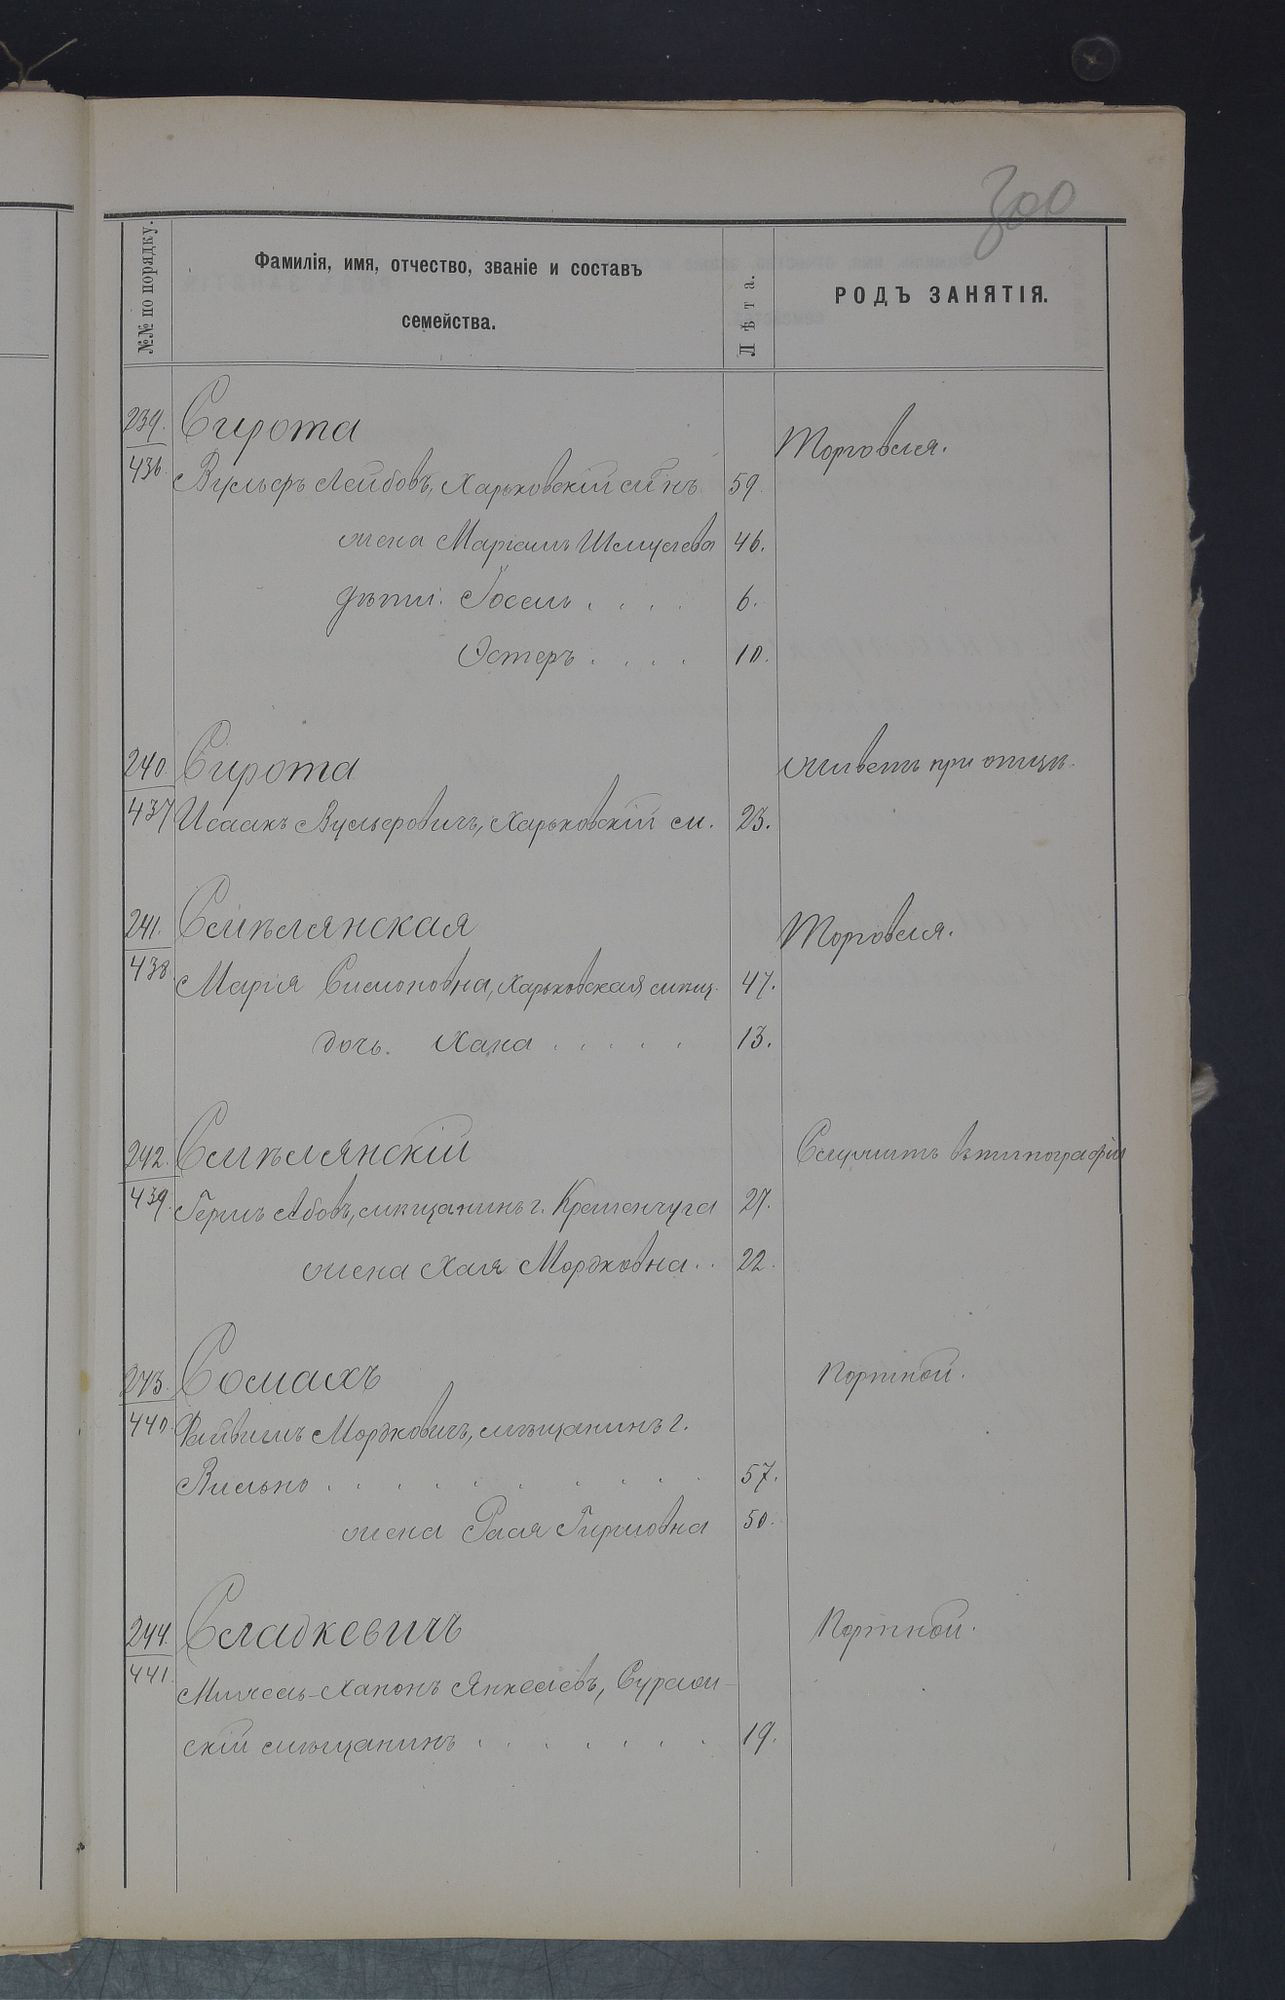 300
№№ по порядку.
Фамилія, имя, отчество, званіе и составъ
семейства.
Лѣта.
РОДЪ ЗАНЯТІЯ.
239. Сирота
Торговля.
436. Вульфъ Лейбовъ, Харьковскій м-нъ 59.
жена Маріамъ Шмулева 46.
дѣти: Іосель . . . . 6.
Эстеръ . . . . 10.
240. Сирота
живетъ при отцѣ.
437 Исаакъ Вульфовичъ, Харьковскій м. 23.
241. Смѣлянская
Торговля.
438. Марія Симоновна, Харьковская мѣщ. 47.
дочь. Хана . . . . . 13.
242. Смѣлянскій
Служитъ въ типографіи
439. Гершъ Абовъ, мѣщанинъ г. Кременчуга 27.
жена Хая Мордковна . . 22.
243. Сомахъ
Портной.
440. Файвишъ Мордковичъ, мѣщанинъ г.
Вильно . . . . . . . . . 57.
жена Рася Гиршовна 50.
244. Сладкевичъ
Портной.
441. Янкелевъ,
скій мѣщанинъ . . . . . . . 19.